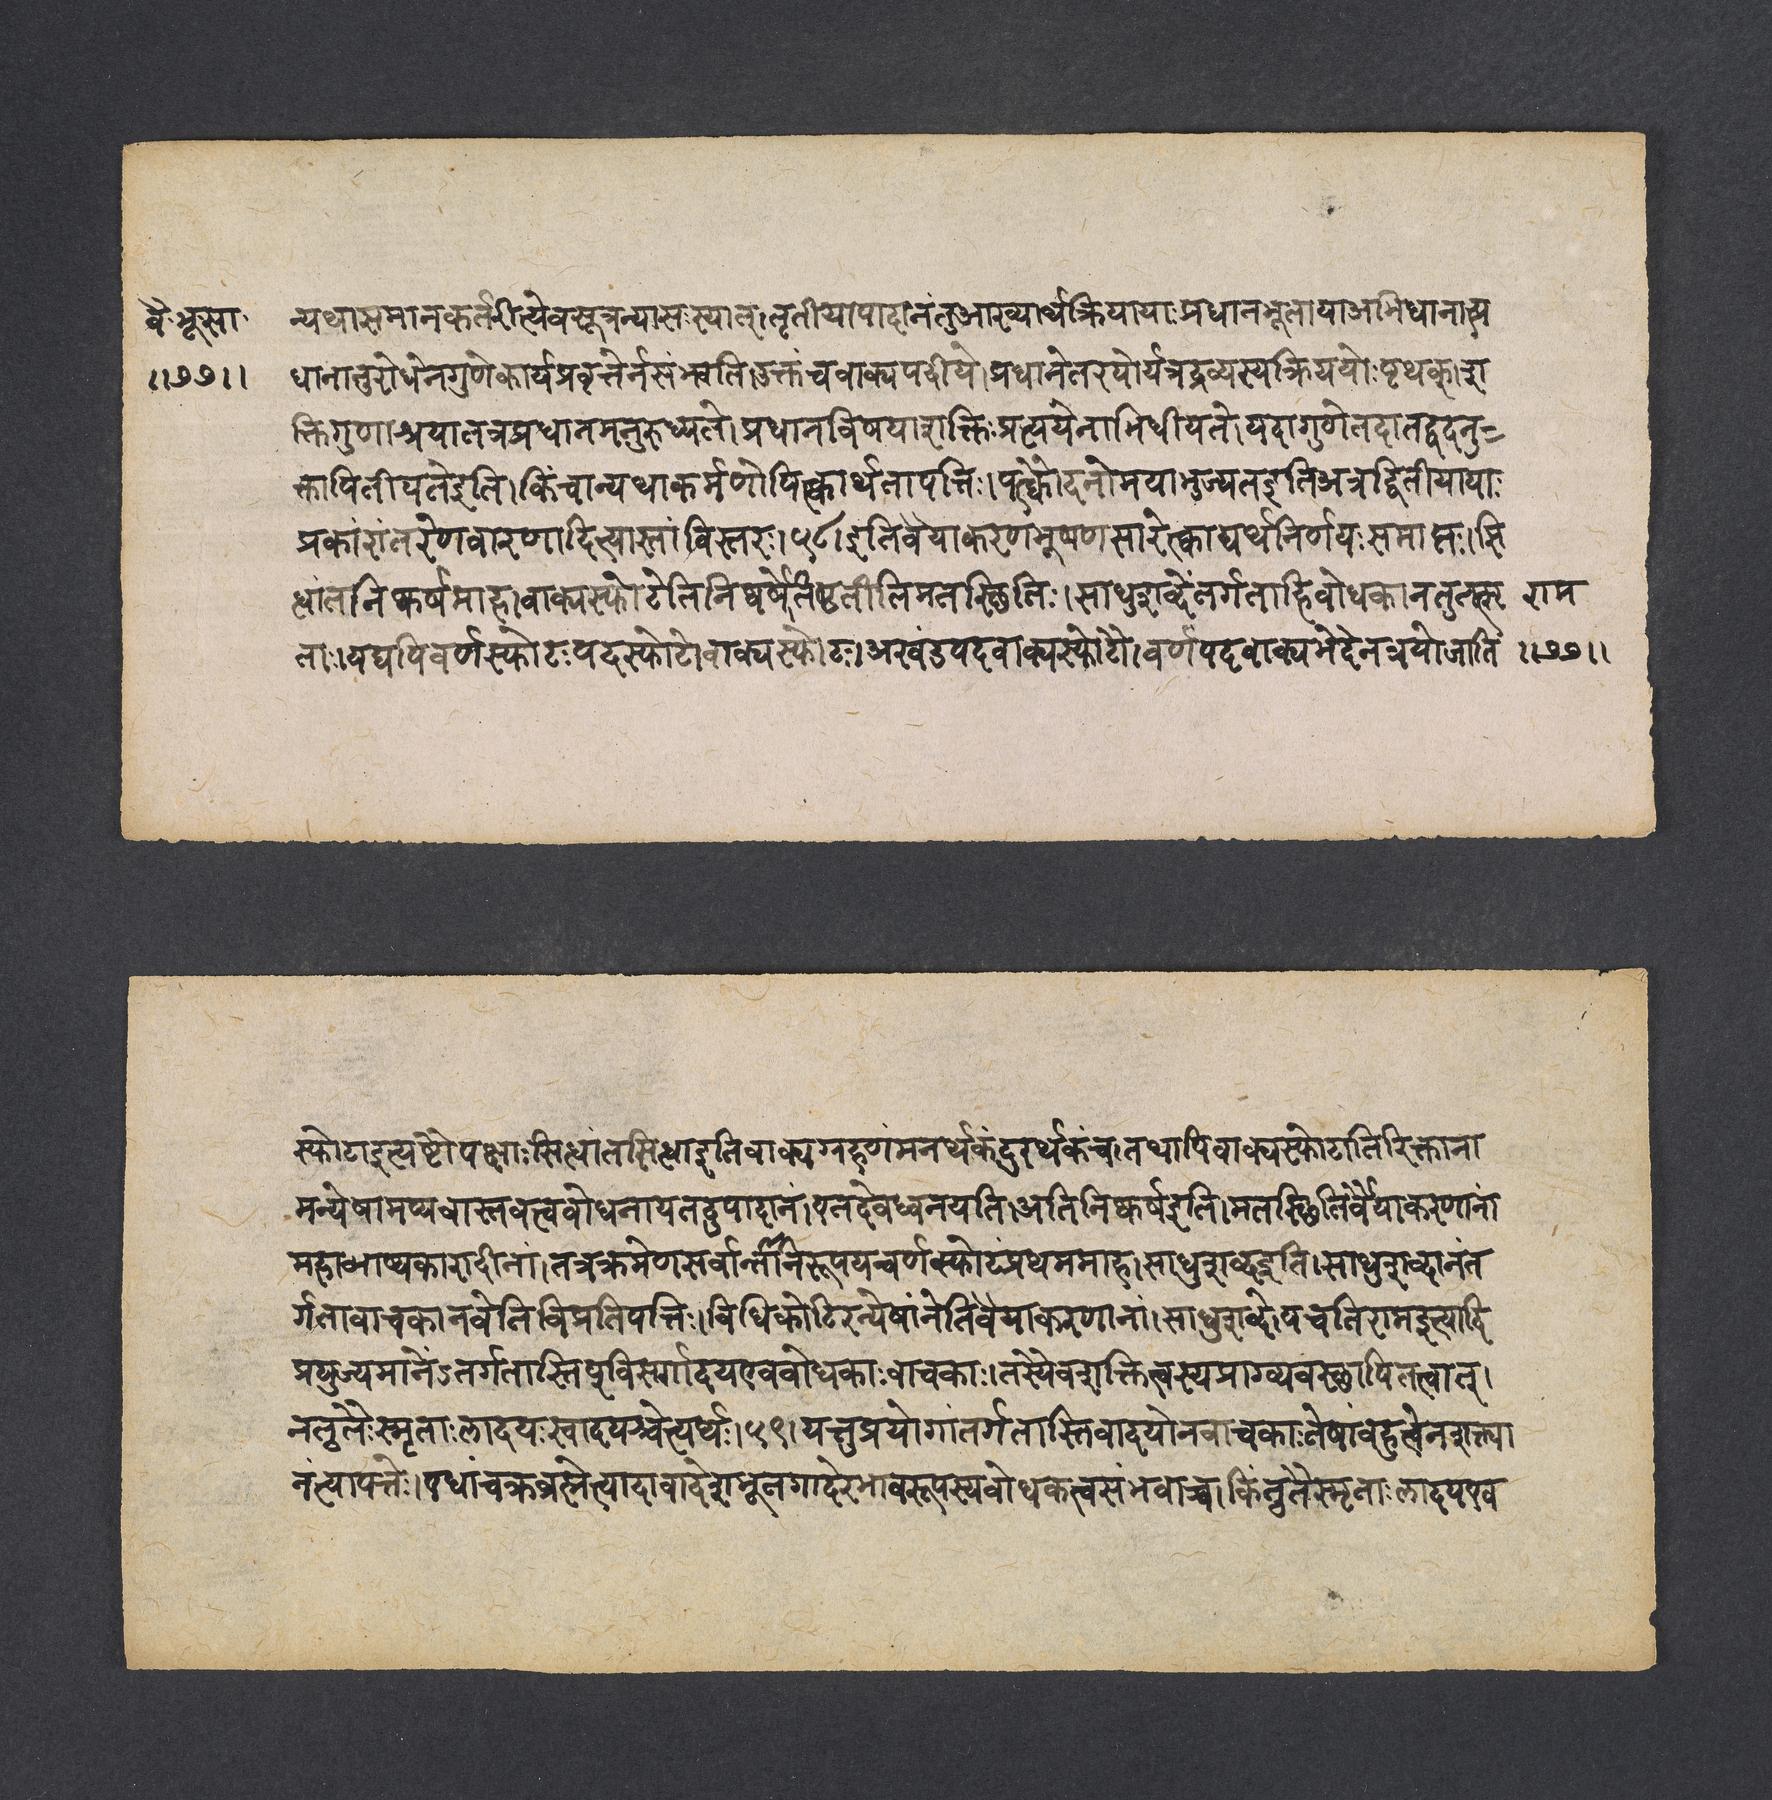 वै॰भू॰सा॰
॥७७॥
न्यथासमानकर्तरीत्येवसूत्रन्यासःस्यात्।तृतीयोपादानंतुआख्यार्थक्रियायाःप्रधानभूतायाअभिधानात्प्र
धानानुरोधेनगुणेकार्यप्रवृत्तेर्नसंभवति।उक्तंचवाक्यपदीये।प्रधानेतरयोर्यत्रद्रव्यस्यक्रिययोःपृथक्।श
क्तिर्गुणाश्रयातत्रप्रधानमनुरुध्यते।प्रधानविषयाशक्तिःप्रत्ययेनाभिधीयते।यदागुणेतदातद्वदनु
क्तापितीयतेइति।किंचान्यथाकर्मणोपित्कार्थतापत्तिः।पत्क्वोदनोमयाभुज्यतइतिअत्रद्वितीयायाः
प्रकांरांतरेणवारणादित्यास्तांविस्तरः।५८।इतिवैयाकरणभूषणसारेत्काद्यर्थनिर्णयःसमाप्तः।सि
ध्वांतनिष्कर्षमाह।वाक्यस्फोटेतिनिष्कर्षेतिष्ठतीतिमतस्छितिः।साधुशब्देंतर्गताहिबोधकानतुतत्स्मृ
ताः।यद्यपिवर्णस्फोटःपदस्फोटोवाक्यस्फोटः।अखंडपदवाक्यस्फोटौ।वर्णपदवाक्यभेदेनत्रयोजाति
राम
॥७७॥
स्फोटाइत्यष्टौपक्षाःसिध्वांतसिध्वाइतिवाक्यग्रहणंमनर्थकंदुरर्थकंच।तथापिवाक्यस्फोटातिरिक्ताना
मन्येषामप्यवास्तवत्वबोधनायतदुपादानं।एतदेवध्वनयति।अतिनिष्कर्षइति।मतस्छितिर्वैयाकरणानां
महाभाष्यकारादीनां।तत्रक्रमेणसर्वान्तान्निरूपयन्वर्णस्फोटंप्रथममाह।साधुशब्दइति।साधुशब्दानंत
र्गतावाचकानवेतिविप्रतिपत्तिः।विधिकोटिरन्येषांनेतिवैयाकरणानां।साधुशब्दे।पचतिरामइत्यादि
प्रयुज्यमानेंऽतर्गतास्तिप्विसर्गादयएवबोधकाःवाचकाः।तस्यैवशक्तित्वस्यप्राग्व्यवस्छापितत्वात्।
नतुतैःस्मृताःलादयःस्वादयश्चेत्यर्थः।५९।यत्तुप्रयोगांतर्गतास्तिबादयोनवाचकाःतेषांबहुत्वेनशक्त्या
नंत्यापत्तेः।एधांचक्रब्रह्मेत्यादावादेशभूतगादेरभावरूपस्यबोधकत्वसंभवाच्च।किंतुतैस्मृताःलादयएव